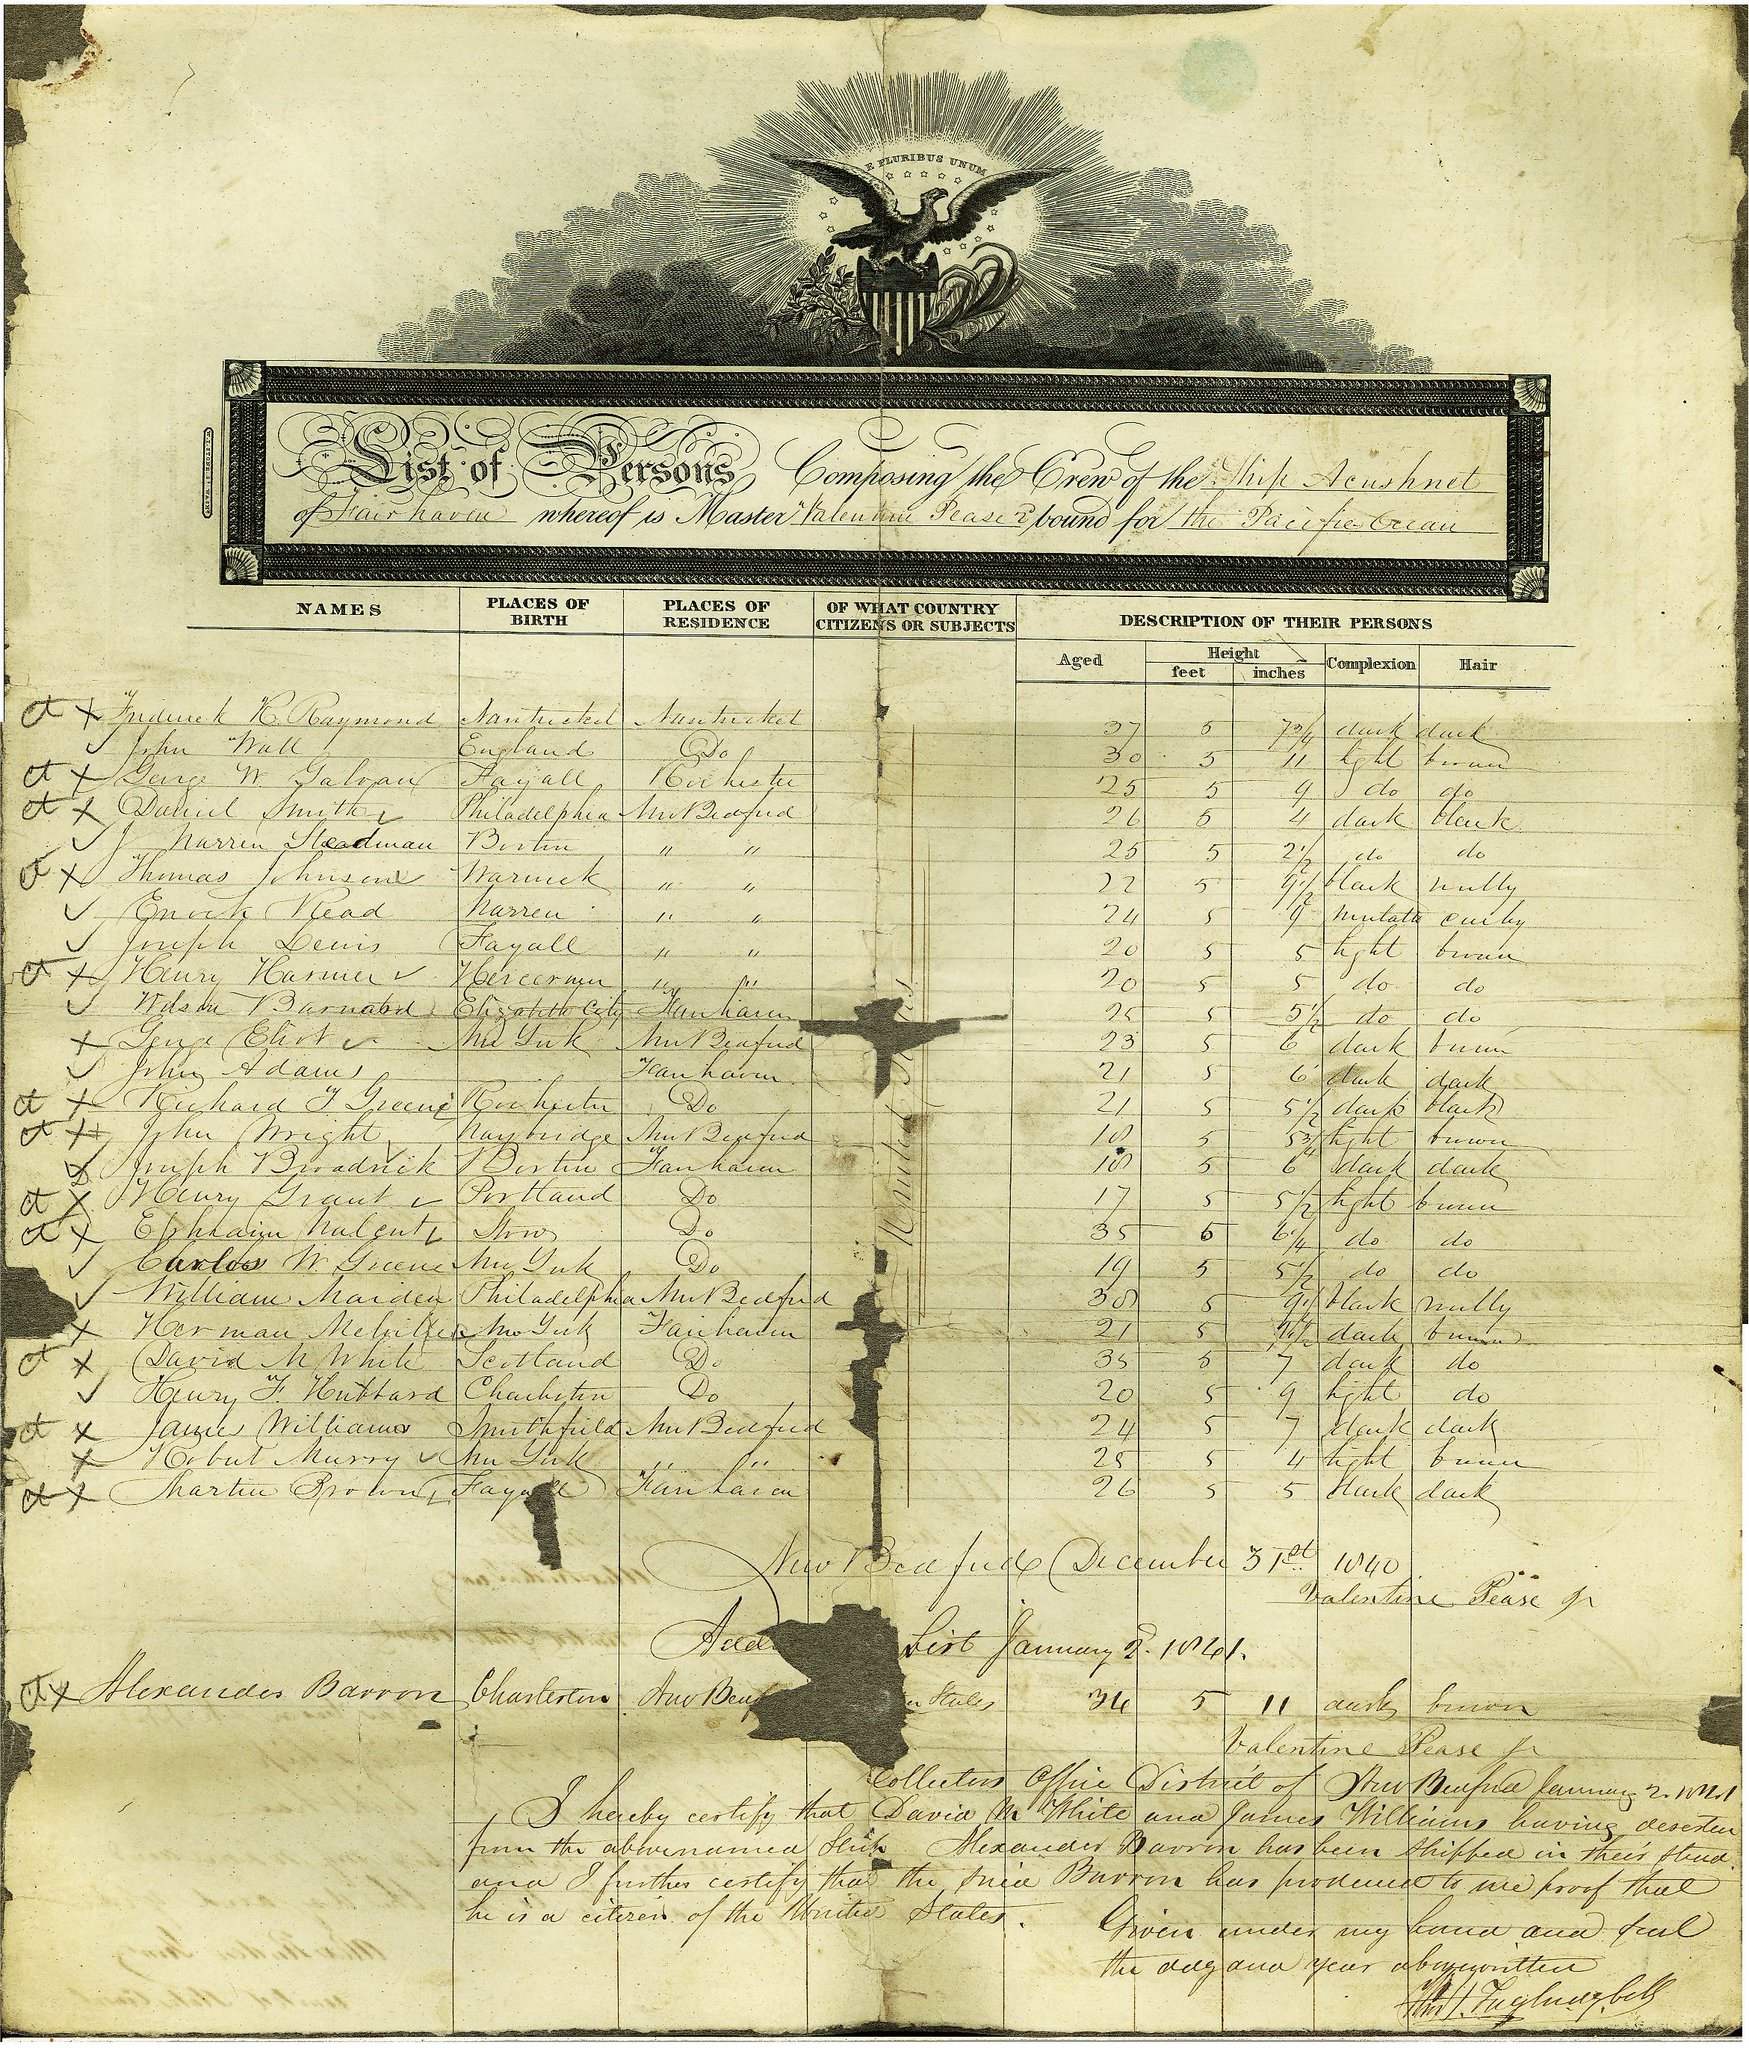 E PLURIBUS UNUM
List of Persons Composing the Crew of the Ship Acushnet
of Fairhaven whereof is Master Valentine Pease Jr bound for the Pacific Ocean
NAMES PLACES OF BIRTH PLACES OF RESIDENCE OF WHAT COUNTRY CITIZENS OR SUBJECTS DESCRIPTION OF THEIR PERSONS
Aged Height feet inches Complexion Hair
Frederick R. Raymond Nantucket Nantucket 37 5 7 3/4 dark dark
John Wall England Do 30 5 11 light brown
George W Galvan Fayall Rochester 25 5 9 do do
Daniel Smith Philadelphia New Bedford 26 5 4 dark black
J Warren Steadman Boston " " 25 5 2 1/2 do do
Thomas Johnson Warwick " " 22 5 9 1/2 black wolly
Enoch Read Warren " " 24 5 9 mulatto curly
Joseph Lewis Fayall " " 20 5 5 light brown
Henry Harmer " " 20 5 5 do do
Wilson Barnard Elizabeth City Fairhaven 25 5 5 1/2 do do
George Eliot New York New Bedford 23 5 6 dark brown
John Adams Fairhaven 21 5 6 dark dark
Richard T Greene Rochester Do 21 5 5 1/2 dark black
John Wright Waybridge New Bedford 18 5 5 3/4 light brown
Joseph Broadrick Boston Fairhaven 18 5 6 dark dark
Henry Grant Portland Do 17 5 5 1/2 light brown
Ephraim Walcut Stow Do 35 5 6 1/4 do do
Carlos W Greene New York Do 19 5 5 1/2 do do
William Maiden Philadelphia New Bedford 38 5 9 1/2 black wolly
Herman Melville New York Fairhaven 21 5 9 1/2 dark brown
David M White Scotland Do 35 5 7 dark do
Henry F. Hubbard Charleston Do 20 5 9 light do
James Williams Smithfield New Bedford 24 5 7 dark dark
Robert Murry New York " " 25 5 4 light brown
Martin Brown Fayall Fairhaven 26 5 5 dark dark
United States
New Bedford December 31st 1840
Valentine Pease Jr
Add List January 2. 1841.
Alexander Barron Charleston New Bedf States 34 5 11 dark brown
Valentine Pease Jr
Collectors Office District of New Bedford January 2. 1841
I hereby certify that David M White and James Williams having deserted
from the abovenamed Ship Alexander Barron has been Shipped in their stead
and I further certify that the said Barron has produced to me proof that
he is a citizen of the United States.
Given under my hand and seal
the day and year abovewritten